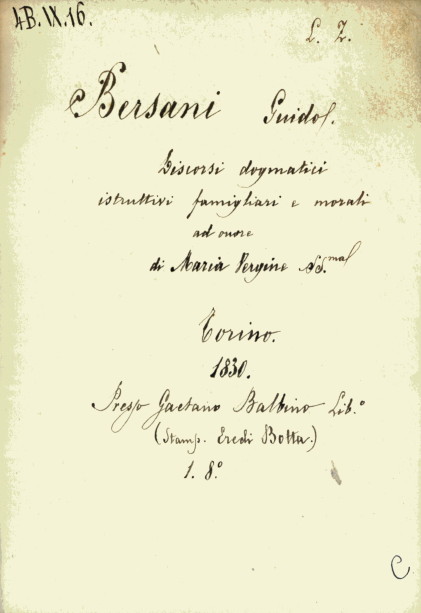 4B.IX.16.
L. Z.
Bersani Guido.
Discorsi dogmatici
istruttivi famigliari e morali
ad onore
di Maria Vergine SS.ma
Torino.
1830.
Presso Gaetano Balbino Lib.o
(Stamp. Eredi Botta.)
1. 8.o
C